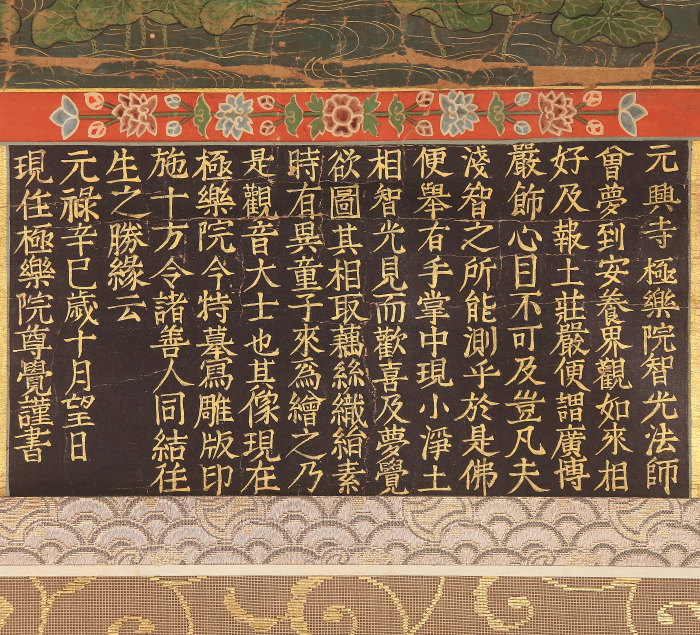 元興寺極樂院智光法師
曾夢到安養界觀如來相
好及報土莊嚴便謂廣博
嚴飾心目不可及豈凡夫
淺智之所能測乎於是佛
便舉右手掌中現小淨土
相智光見而歡喜及夢覺
欲圖其相取藕絲織絹素
時有異童子來為繪之乃
是觀音大士也其像現在
極樂院今特摹寫雕版印
施十方令諸善人同結往
生之勝緣云
元祿辛巳歲十月望日
現住極樂院尊覺謹書